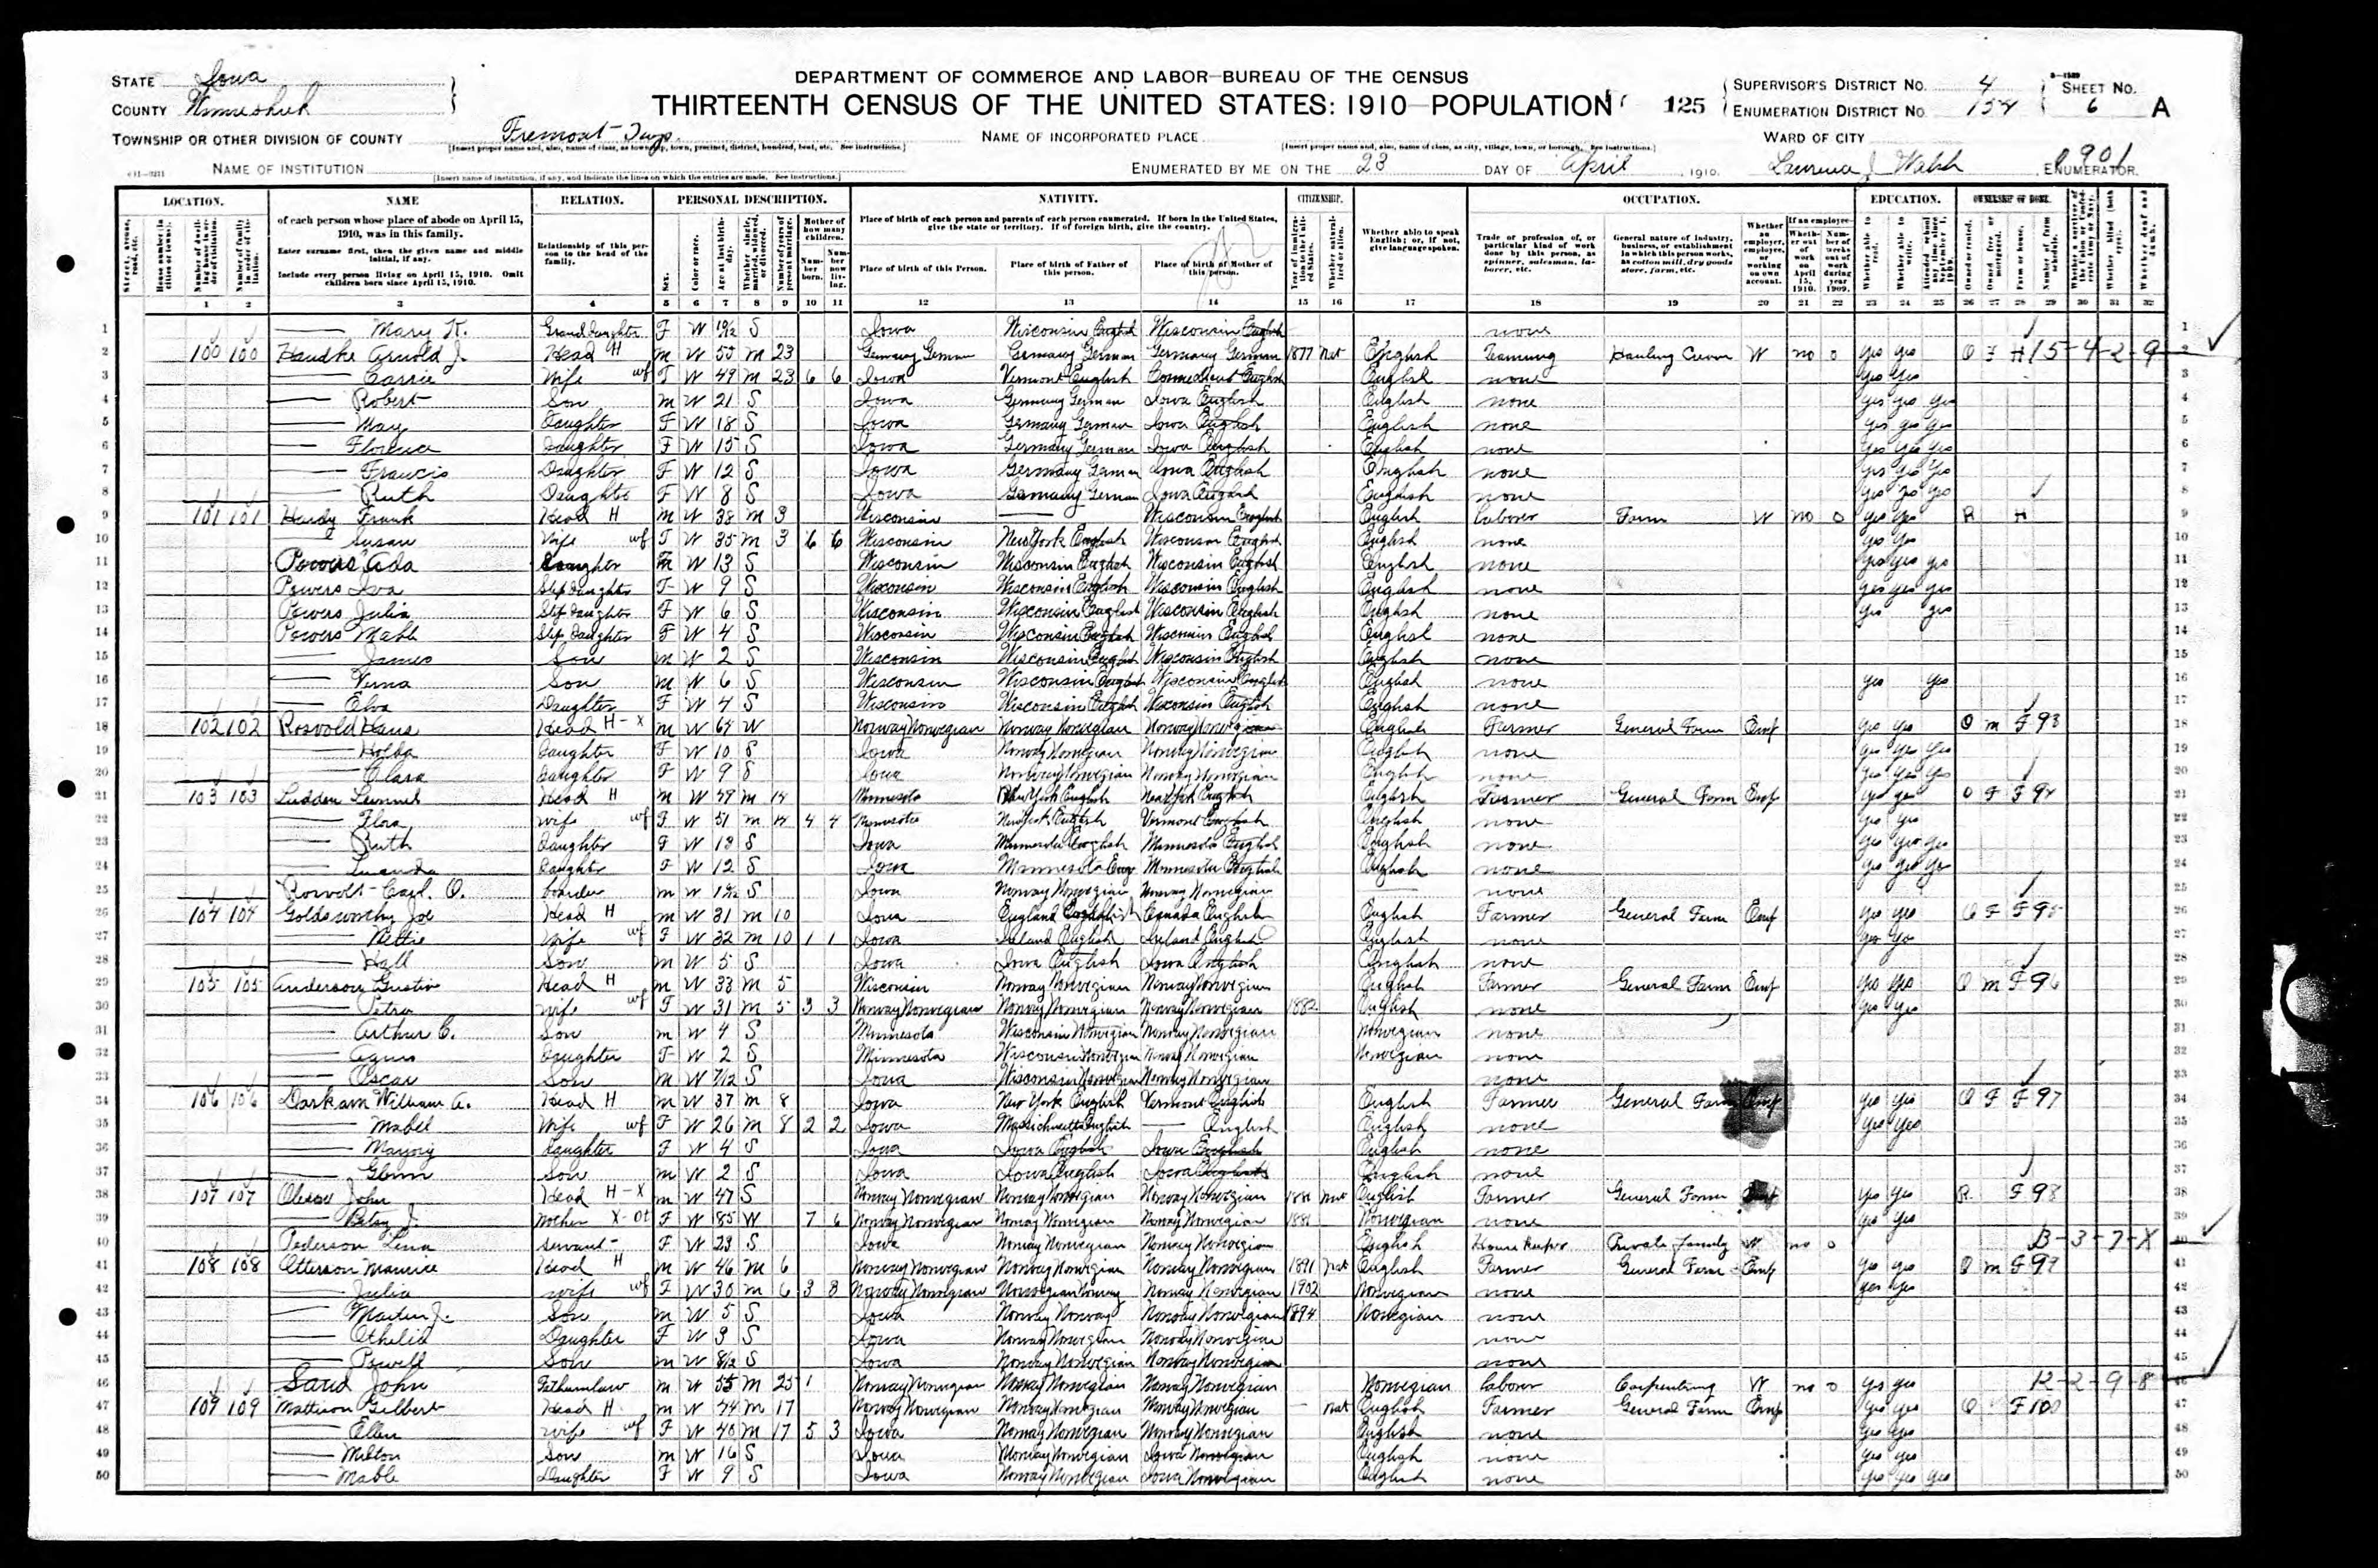 STATE Iowa
COUNTY Winneshiek
TOWNSHIP OR OTHER DIVISION OF COUNTY Fremont Twp.
[Insert proper name and, also, name of class, as township, town, precinct, district, hundred, beat, etc. See instructions.]
NAME OF INSTITUTION
[Insert name of institution, if any, and indicate the lines on which the entries are made. See instructions.]
DEPARTMENT OF COMMERCE AND LABOR—BUREAU OF THE CENSUS
THIRTEENTH CENSUS OF THE UNITED STATES: 1910—POPULATION
NAME OF INCORPORATED PLACE
[Insert proper name and, also, name of class, as city, village, town, or borough. See instructions.]
ENUMERATED BY ME ON THE 23 DAY OF April, 1910. Lawrence J. Walsh, ENUMERATOR.
125
SUPERVISOR'S DISTRICT No. 4
ENUMERATION DISTRICT No. 154
SHEET No. 6 A
WARD OF CITY
901
LOCATION. NAME RELATION. PERSONAL DESCRIPTION. NATIVITY. CITIZENSHIP. OCCUPATION. EDUCATION. OWNERSHIP OF HOME.
of each person whose place of abode on April 15, 1910, was in this family.
Enter surname first, then the given name and middle initial, if any.
Include every person living on April 15, 1910. Omit children born since April 15, 1910.
Relationship of this person to the head of the family.
Place of birth of each person and parents of each person enumerated. If born in the United States, give the state or territory. If of foreign birth, give the country.
Place of birth of this Person. Place of birth of Father of this person. Place of birth of Mother of this person.
Whether able to speak English; or, if not, give language spoken.
Trade or profession of, or particular kind of work done by this person, as spinner, salesman, laborer, etc.
General nature of industry, business, or establishment in which this person works, as cotton mill, dry goods store, farm, etc.
1 2 3 4 5 6 7 8 9 10 11 12 13 14 15 16 17 18 19 20 21 22 23 24 25 26 27 28 29 30 31 32
1 — Mary K. Granddaughter F W S Iowa Wisconsin English Wisconsin English none
2 100 100 Arnold J. Head H M W 55 M 23 Germany German Germany German Germany German 1877 Nat English Teaming W no 0 yes yes O F H 15-4-2-9
3 — Carrie Wife wf F W 49 M 23 6 6 Iowa Vermont English Connecticut English English none yes yes
4 — Robert Son M W 21 S Iowa Germany German Iowa English English none yes yes yes
5 — May Daughter F W 18 S Iowa Germany German Iowa English English none yes yes yes
6 — Florence Daughter F W 15 S Iowa Germany German Iowa English English none yes yes yes
7 — Francis Daughter F W 12 S Iowa Germany German Iowa English English none yes yes yes
8 — Ruth Daughter F W 8 S Iowa Germany German Iowa English English none yes yes yes
9 101 101 Hardy Frank Head H M W 38 M 3 Wisconsin — Wisconsin English English Laborer Farm W no 0 yes yes R H
10 — Susan Wife wf F W 35 M 3 6 6 Wisconsin New York English Wisconsin English English none yes yes
11 Powers Ada Daughter F W 13 S Wisconsin Wisconsin English Wisconsin English English none yes yes yes
12 Powers Iva Step Daughter F W 9 S Wisconsin Wisconsin English Wisconsin English English none yes yes yes
13 Powers Julia Step Daughter F W 6 S Wisconsin Wisconsin English Wisconsin English English none yes yes
14 Powers Mabl Step Daughter F W 4 S Wisconsin Wisconsin English Wisconsin English English none
15 — James Son M W 2 S Wisconsin Wisconsin English Wisconsin English English none
16 — Verna Son M W 6 S Wisconsin Wisconsin English Wisconsin English English none yes yes
17 — Elva Daughter F W 4 S Wisconsin Wisconsin English Wisconsin English English none
18 102 102 Rosvold Hans Head H-X M W W Norway Norwegian Norway Norwegian Norway Norwegian English Farmer General Farm Emp yes yes O M F 93
19 — Holda Daughter F W 10 S Iowa Norway Norwegian Norway Norwegian English none yes yes yes
20 — Clara Daughter F W 9 S Iowa Norway Norwegian Norway Norwegian English none yes yes yes
21 103 103 Ludden Lemuel Head H M W 49 M 14 Minnesota New York English New York English English Farmer General Farm Emp yes yes O F F 94
22 — Flora Wife wf F W 51 M 14 4 4 Minnesota New York English Vermont English English none yes yes
23 — Ruth Daughter F W 13 S Iowa Minnesota English Minnesota English English none yes yes yes
24 — Daughter F W 12 S Iowa Minnesota Eng Minnesota English English none yes yes yes
25 Rosvolt Carl. O. boarder M W S Iowa Norway Norwegian Norway Norwegian — none
26 104 104 Goldsworthy Joe Head H M W 31 M 10 Iowa England English Canada English English Farmer General Farm Emp yes yes O F F 95
27 — Nettie Wife wf F W 32 M 10 1 1 Iowa Ireland English Ireland English English none yes yes
28 — Hall Son M W 5 S Iowa Iowa English Iowa English English none
29 105 105 Anderson Gustav Head H M W 33 M 5 Wisconsin Norway Norwegian Norway Norwegian English Farmer General Farm Emp yes yes O M F 96
30 — Petra wife wf F W 31 M 5 3 3 Norway Norwegian Norway Norwegian Norway Norwegian 1882 English none yes yes
31 — Arthur C. Son M W 4 S Minnesota Wisconsin Norwegian Norway Norwegian Norwegian none
32 — Agnes Daughter F W 2 S Minnesota Wisconsin Norwegian Norway Norwegian Norwegian none
33 — Oscar Son M W 7/12 S Iowa Wisconsin Norwegian Norway Norwegian none
34 106 106 Darkam William A. Head H M W 37 M 8 Iowa New York English Vermont English English Farmer General Farm Emp yes yes O F F 97
35 — Mabel Wife wf F W 26 M 8 2 2 Iowa Massachusetts English — English English none yes yes
36 — Marjory Daughter F W 4 S Iowa Iowa English Iowa English English none
37 — Glenn Son M W 2 S Iowa Iowa English Iowa English English none
38 107 107 Oleson John Head H-X M W 47 S Norway Norwegian Norway Norwegian Norway Norwegian 1881 Nat English Farmer General Farm Emp yes yes R F 98
39 — Betsy J. Mother X-Ot F W 85 W 7 6 Norway Norwegian Norway Norwegian Norway Norwegian 1881 Norwegian none yes yes
40 Pederson Lena servant F W 23 S Iowa Norway Norwegian Norway Norwegian English House Keeper Private family W no 0 B-3-7-X
41 108 108 Otterson Maurice Head H M W 46 M 6 Norway Norwegian Norway Norwegian Norway Norwegian 1891 Nat English Farmer General Farm Emp yes yes O M F 99
42 — Julia wife wf F W 30 M 6 3 3 Norway Norwegian Norwegian Norway Norway Norwegian 1902 Norwegian none yes yes
43 — Martin J. Son M W 5 S Iowa Norway Norway Norway Norwegian 1894 Norwegian none
44 — Othelia Daughter F W 3 S Iowa Norway Norwegian Norway Norwegian none
45 — Powell Son M W 8/12 S Iowa Norway Norwegian Norway Norwegian none
46 Sand John Fatherinlaw M W 55 M 25 1 Norway Norwegian Norway Norwegian Norway Norwegian Norwegian Laborer Carpentering W no 0 yes yes 12-2-9-8
47 109 109 Mattison Gilbert Head H M W 44 M 17 Norway Norwegian Norway Norwegian Norway Norwegian — Nat English Farmer General Farm Emp yes yes O F 100
48 — Ellen wife wf F W 40 M 17 5 3 Iowa Norway Norwegian Norway Norwegian English none yes yes
49 — Milton Son M W 16 S Iowa Norway Norwegian Iowa Norwegian English none yes yes
50 — Mable Daughter F W 9 S Iowa Norway Norwegian Iowa Norwegian English none yes yes yes